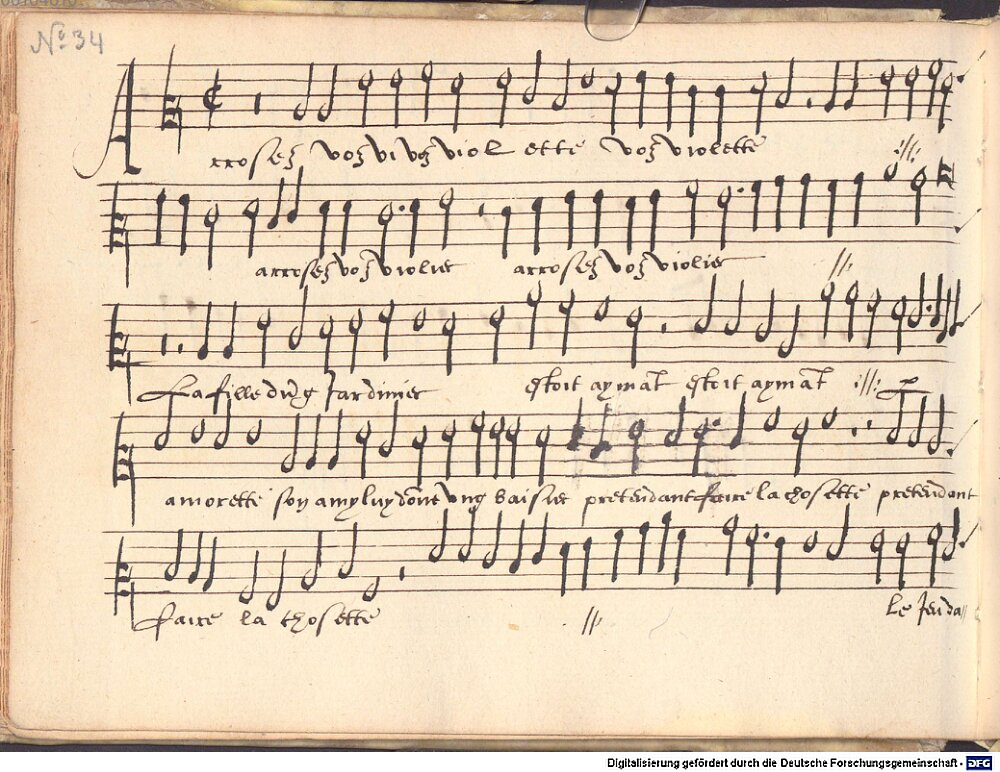 Nº 34
Arrosez voz vi vz violette voz violette ://:
arrosez voz violiet arrosez voz violiet //
La fille dung Jardinier estoit aymāt estoit aymāt :///: p
amorette son amy luy dōnt ung baisiet pretendant faire la chosette pretendant
faire la chosette // le Jenda
Digitalisierung gefördert durch die Deutsche Forschungsgemeinschaft - DFG